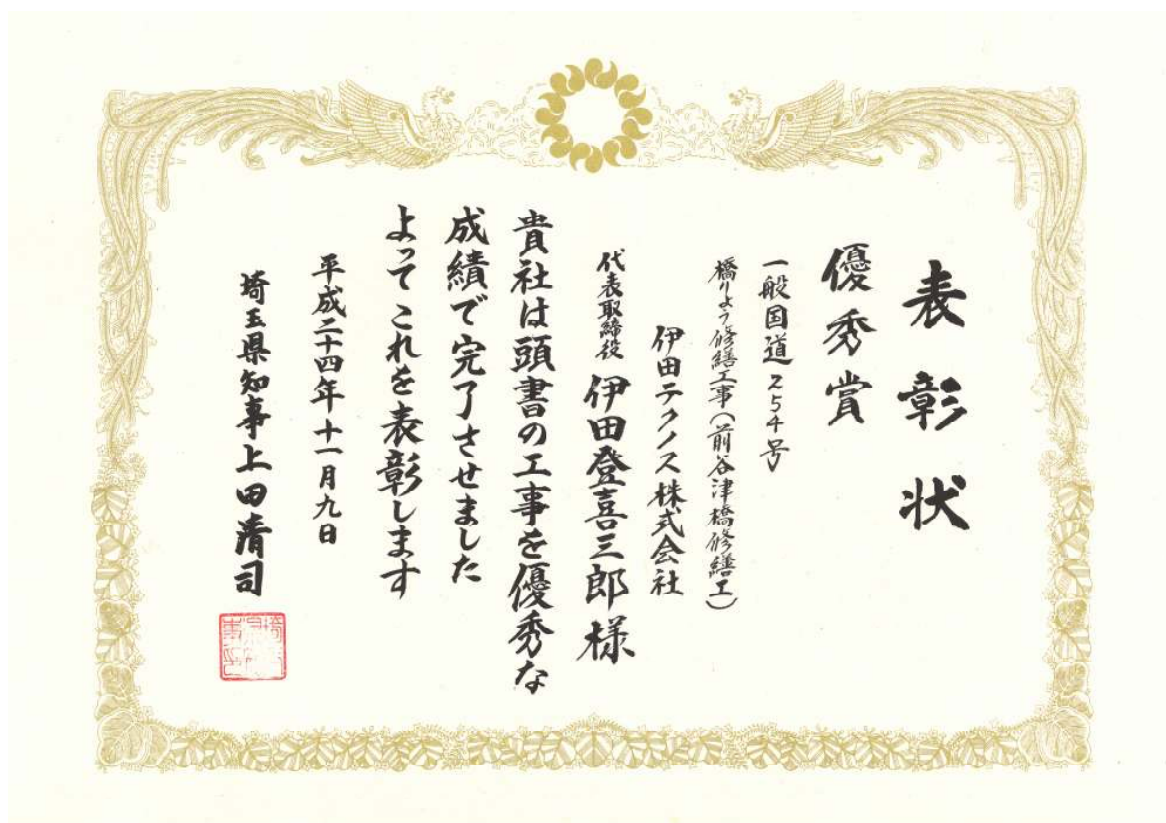 表彰状
優秀賞
一般国道254号
橋りょう修繕工事(前谷津橋修繕工)
伊田テクノス株式会社
代表取締役 伊田登喜三郎様
貴社は頭書の工事を優秀な
成績で完了させました
よってこれを表彰します
平成二十四年十一月九日
埼玉県知事上田清司